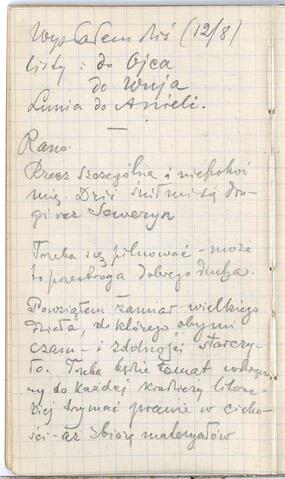 Wysłałem dziś (12/8)
listy: do Ojca
do Wuja
Lunia do Anieli.
—
Rano.
Rzecz szczególna i niepokoi
mię. Dziś śnił mi się dru-
gi raz Seweryn
Trzeba się pilnować – może
to przestroga dobrego ducha.
Powziąłem zamiar wielkiego
dzieła, do którego obymi
czasu – i zdolności starczy-
ło. Trzeba będzie temat
ny do każdej kradzieży literac-
kiej trzymać prawie w cicho-
ści – aż zbiorę materyałów